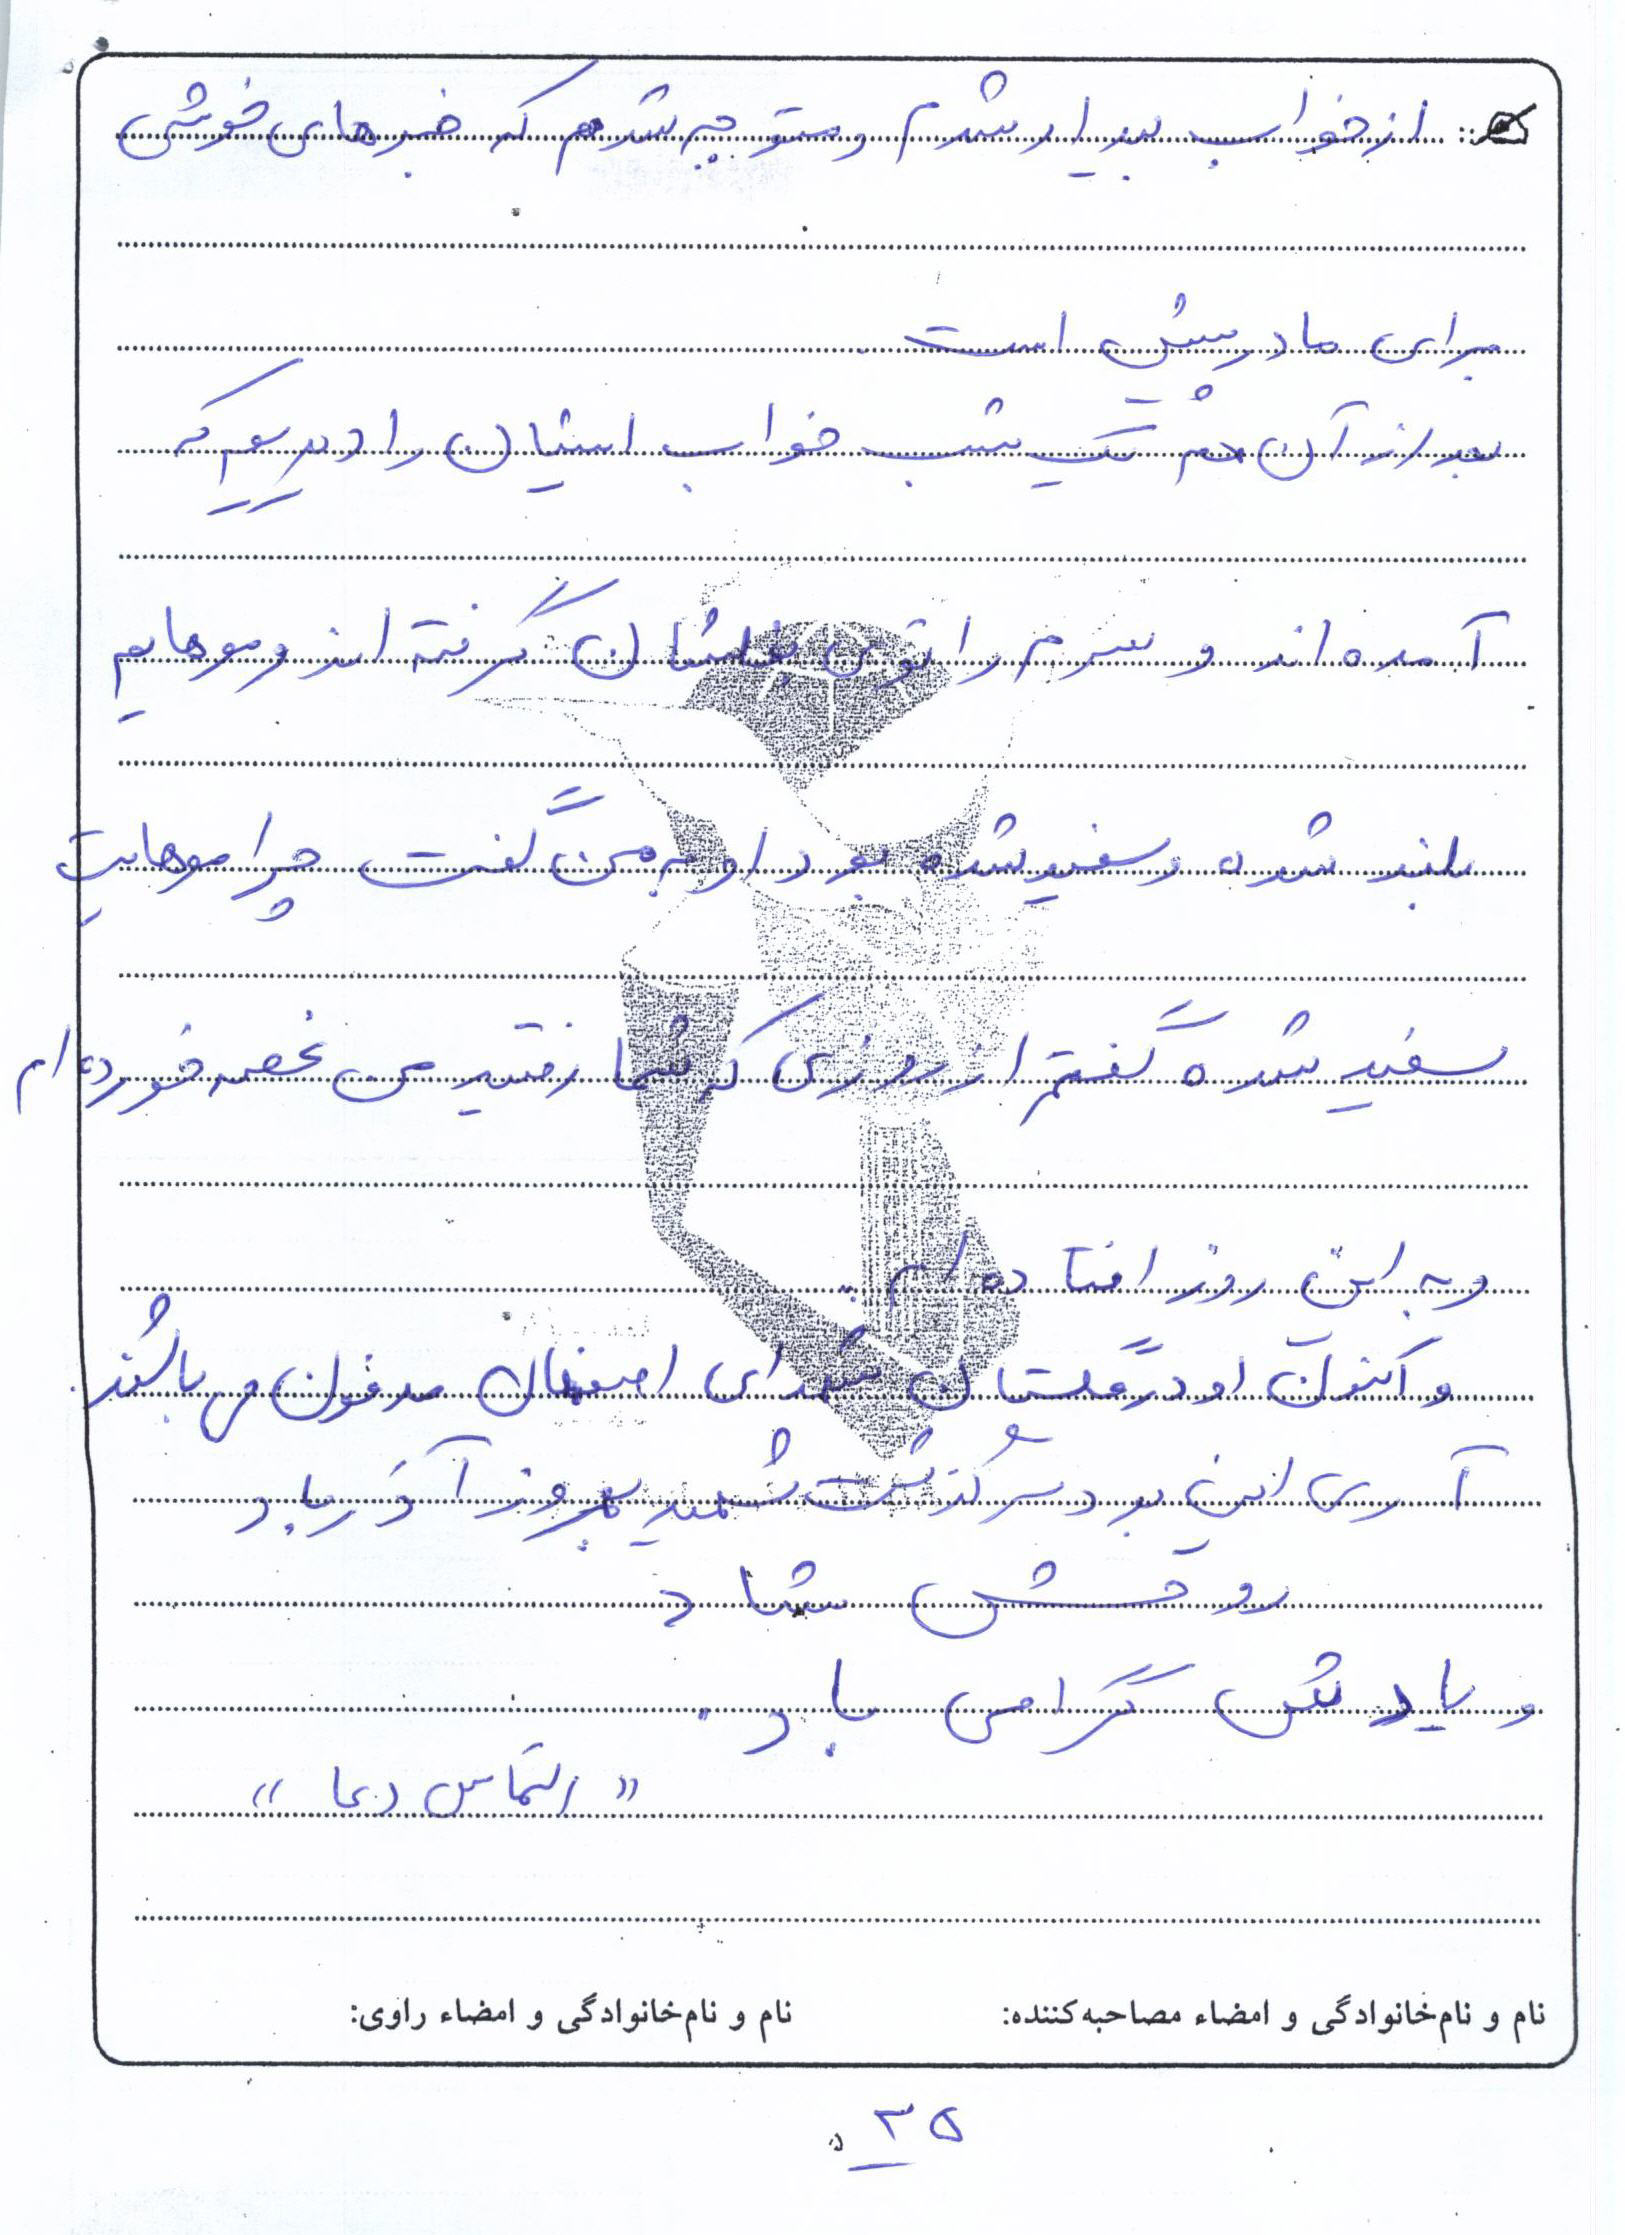 از خواب بیدار شدم و متوجه شدم که خبرهای خوشی
برای مادرش است
بعد از آن هم یک شب خواب ایشان را دیدیم که
آمده اند و سرم را توی بغلشان گرفته اند و موهایم
بلند شده و سفید شده بود او به من گفت چرا موهایت
سفید شده گفتم از روزی که شما رفتید من غصه خورده ام
و به این روز افتاده ام .
و اکنون او در گلستان شهدای اصفهان مدفون می باشند.
آری این بود سرگذشت شهید بهروز آذرباد
روحش شاد
و یادش گرامی باد.
« التماس دعا »
نام و نام‌خانوادگی و امضاء مصاحبه‌کننده: نام و نام‌خانوادگی و امضاء راوی:
۳۵